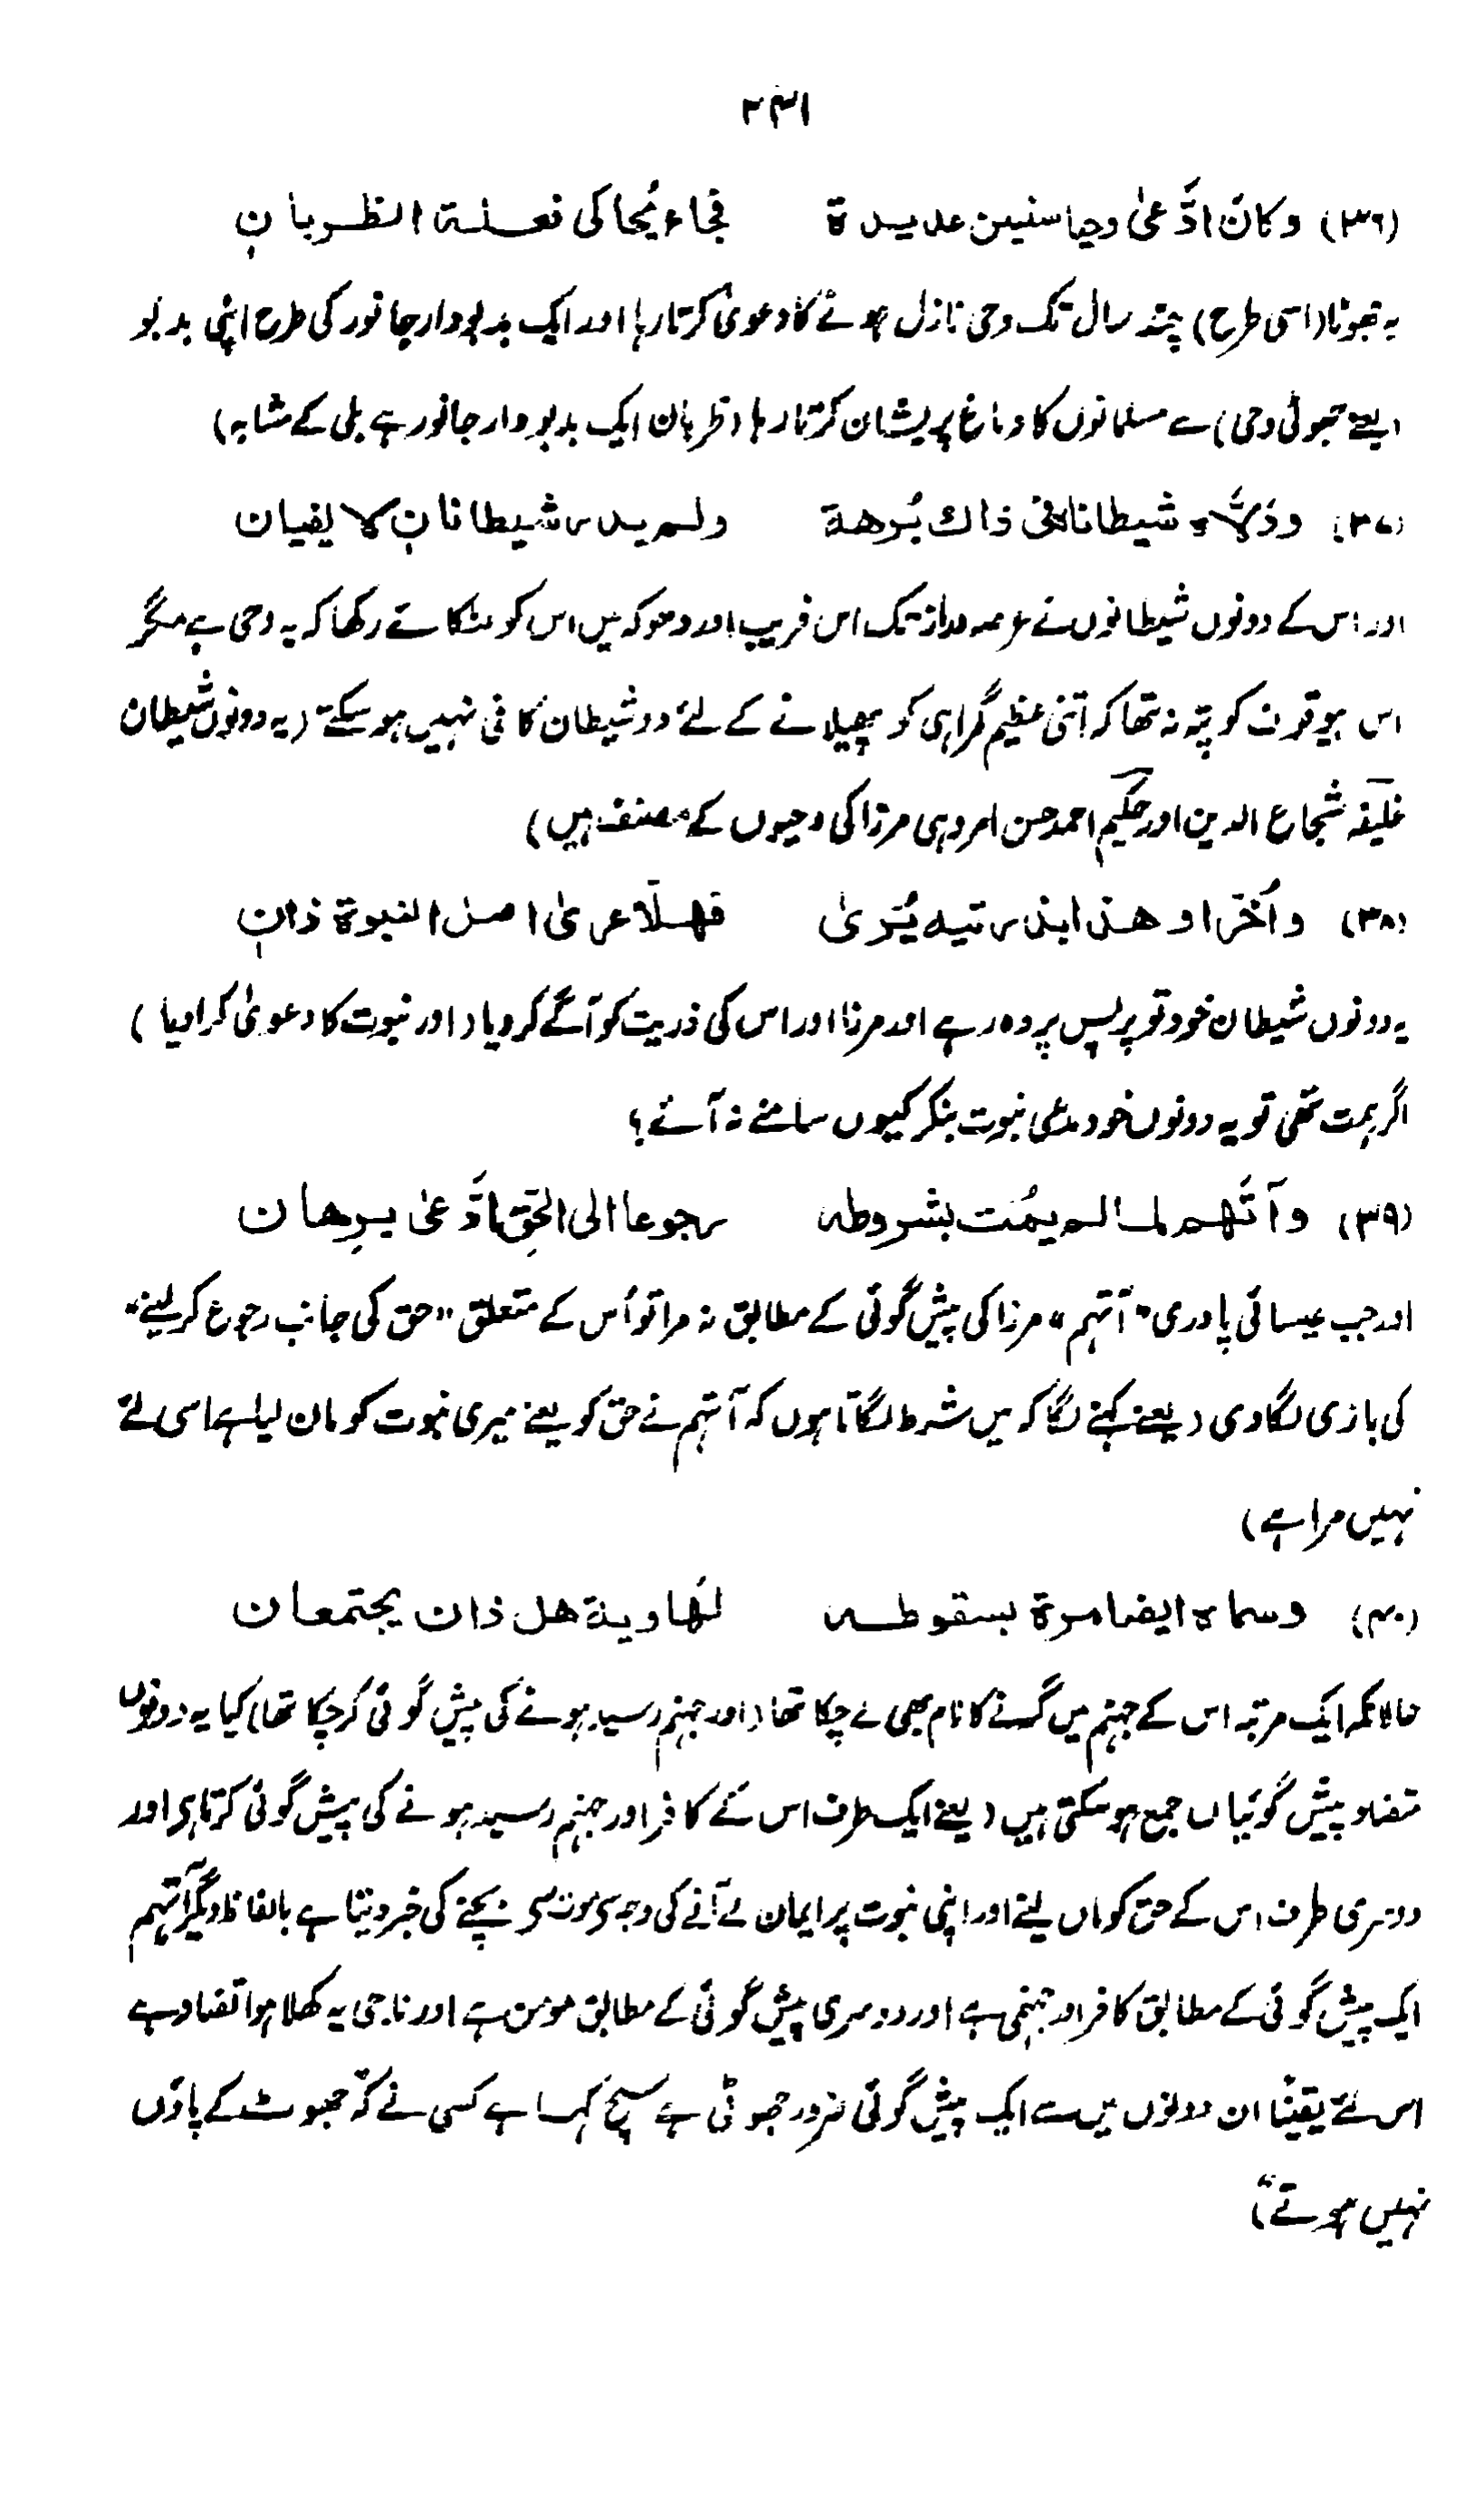 ۲۴۱
(۳۶) وکان ادّعیٰ وحیا سنین عدیدة فجاء یُحاکی فعلة الظربان
یہ جھوٹا (اسی طرح) چند سال تک وحی نازل ہونے کا دعویٰ کرتا رہا اور ایک بدبودار جانور کی طرح اپنی بدبو
(یعنی جھوٹی وحی) سے مسلمانوں کا دماغ پریشان کرتا رہا (ظربان ایک بدبودار جانور ہے بلی کے مشابہ)
(۳۷) ودلّاہ شیطاناہ فی ذاك بُرهة ولم یدر شیطانان لا یفیان
اور اس کے دونوں شیطانوں نے عرصہ دراز تک اس فریب اور دھوکہ میں اس کو لٹکائے رکھا کہ یہ وحی ہے مگر
اس بیوقوف کو پتہ نہ تھا کہ اتنی عظیم گمراہی کو پھیلانے کے لئے دو شیطان کافی نہیں ہو سکتے (یہ دونوں شیطان
خلیفہ شجاع الدین اور حکیم احمد حسن امروہی مرزا کی وحیوں کے مصنف ہیں)
(۳۸) واُخّرا وهذا ابنذرتیه یُری فهلّا عری اصل النبوة ذان
یہ دونوں شیطان خود تو پس پردہ رہے اور مرزا اور اس کی ذریت کو آگے کر دیا (اور نبوت کا دعویٰ کرا دیا)
اگر ہمت تھی تو یہ دونوں خود مدعی نبوت بنکر کیوں سامنے نہ آئے؟
(۳۹) وآتهم لما لم یمُت بشروطه رجوعا الی الحق ادّعی برهان
اور جب عیسائی پادری "آتہم" مرزا کی پیش گوئی کے مطابق نہ مرا تو اُس کے متعلق "حق کی جانب رجوع کر لینے"
کی بازی لگا دی (یعنے کہنے لگا کہ میں شرط لگاتا ہوں کہ آتہم نے حق کو یعنے میری نبوت کو مان لیا ہے اسی لئے
نہیں مرا ہے)
(۴۰) وسماه ایضا مرة بسقوطه لهاویة هل ذان یجتمعان
حالانکہ ایک مرتبہ اس کے جہنم میں گرنے کا نام بھی لے چکا تھا (اور جہنم رسید ہونے کی پیش گوئی کر چکا تھا) کیا یہ دونوں
متضاد پیش گوئیاں جمع ہو سکتی ہیں (یعنے ایک طرف اس کے کافر اور جہنم رسید ہونے کی پیش گوئی کرتا ہی اور
دوسری طرف اس کے حق کو مان لینے اور اپنی نبوت پر ایمان لے آنے کی وجہ سی موت سی بچنے کی خبر دیتا ہے بالفاظ دیگر آتہم
ایک پیش گوئی کے مطابق کافر اور جہنمی ہے اور دوسری پیش گوئی کے مطابق مومن ہے اور ناجی یہ کھلا ہوا تضاد ہے
اس لئے یقیناً ان دونوں میں سے ایک پیش گوئی ضرور جھوٹی ہے سچ کہا ہے کسی نے کہ "جھوٹ کے پاؤں
نہیں ہوتے")